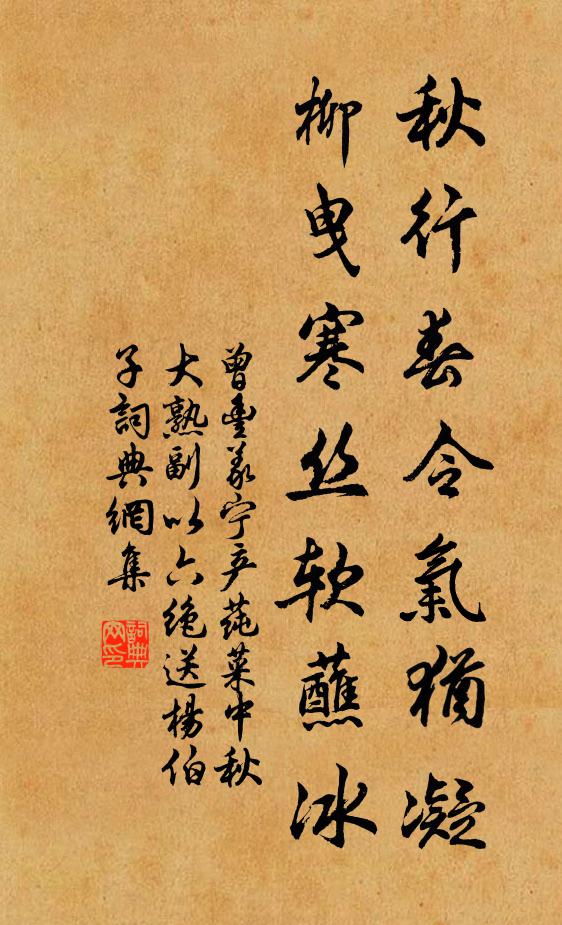 秋行春令氣猶凝
柳曳寒丝软蘸冰
曾豊义宁产莼菜中秋
大熟副以六绝送杨伯
子詞典網集
詞典
网印